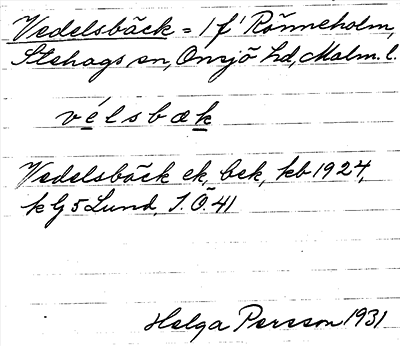 Vedelsbäck = 1 f' Rönneholm,
Stehags sn, Onsjö hd, Malm. l.
vélsbæk
Vedelsbäck ek, bek, kb 1924,
k G 5 Lund, S. Ö. 41
Helga Persson 1931